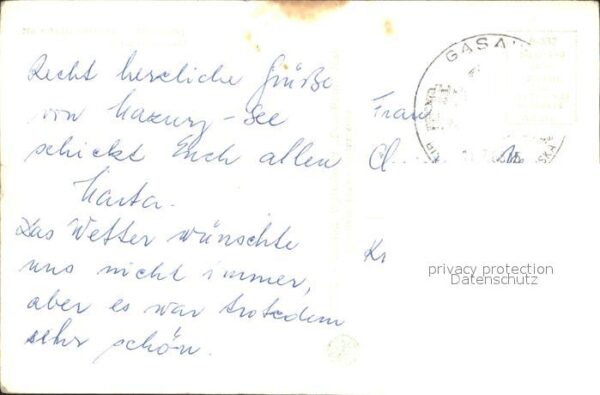 Recht herzliche Grüße
von Mazury-See
schickt Euch allen
Marta.
Das Wetter wünschte
uns nicht immer,
aber es war trotzdem
sehr schön.
Frau
Kr
GASA
privacy protection
Datenschutz